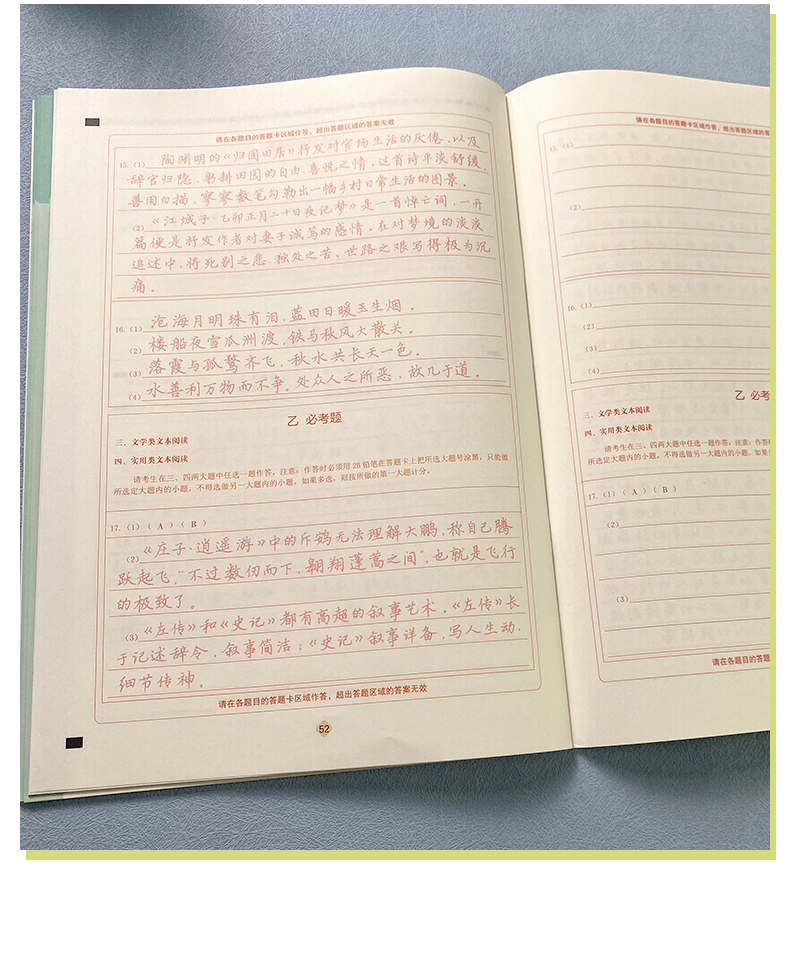 请在各题目的答题卡区域作答，超出答题区域的答案无效
15.（1）陶渊明的《归园田居》抒发对官场生活的厌倦，以及
辞官归隐、躬耕田园的自由、喜悦之情，这首诗平淡舒缓，
善用白描，寥寥数笔勾勒出一幅乡村日常生活的图景。
（2）《江城子·乙卯正月二十日夜记梦》是一首悼亡词，一开
篇便是抒发作者对妻子诚笃的感情，在对梦境的淡淡
追述中，将死别之悲、独处之苦、世路之艰写得极为沉
痛。
16.（1）沧海月明珠有泪，蓝田日暖玉生烟。
（2）楼船夜雪瓜洲渡，铁马秋风大散关。
（3）落霞与孤鹜齐飞，秋水共长天一色。
（4）水善利万物而不争。处众人之所恶，故几于道。
乙 必考题
三、文学类文本阅读
四、实用类文本阅读
请考生在三、四两大题中任选一题作答，注意：作答时必须用2B铅笔在答题卡上把所选大题号涂黑，只能做
所选定大题内的小题，不得选做另一大题内的小题，如果多选，则按所做的第一大题计分。
17.（1）（ A ）（ B ）
（2）《庄子·逍遥游》中的斥鹌无法理解大鹏，称自己腾
跃起飞，“不过数仞而下，翱翔蓬蒿之间”，也就是飞行
的极致了。
（3）《左传》和《史记》都有高超的叙事艺术。《左传》长
于记述辞令，叙事简洁；《史记》叙事详备，写人生动，
细节传神。
请在各题目的答题卡区域作答，超出答题区域的答案无效
52
请在各题目的答题卡区域作答，超出答题区域的答
15.（1）
（2）
16.（1）
（2）
（3）
（4）
乙 必考
三、文学类文本阅读
四、实用类文本阅读
请考生在三、四两大题中任选一题作答，注意：作答时
所选定大题内的小题，不得选做另一大题内的小题，如果多
17.（1）（ A ）（ B ）
（2）
（3）
请在各题目的答题